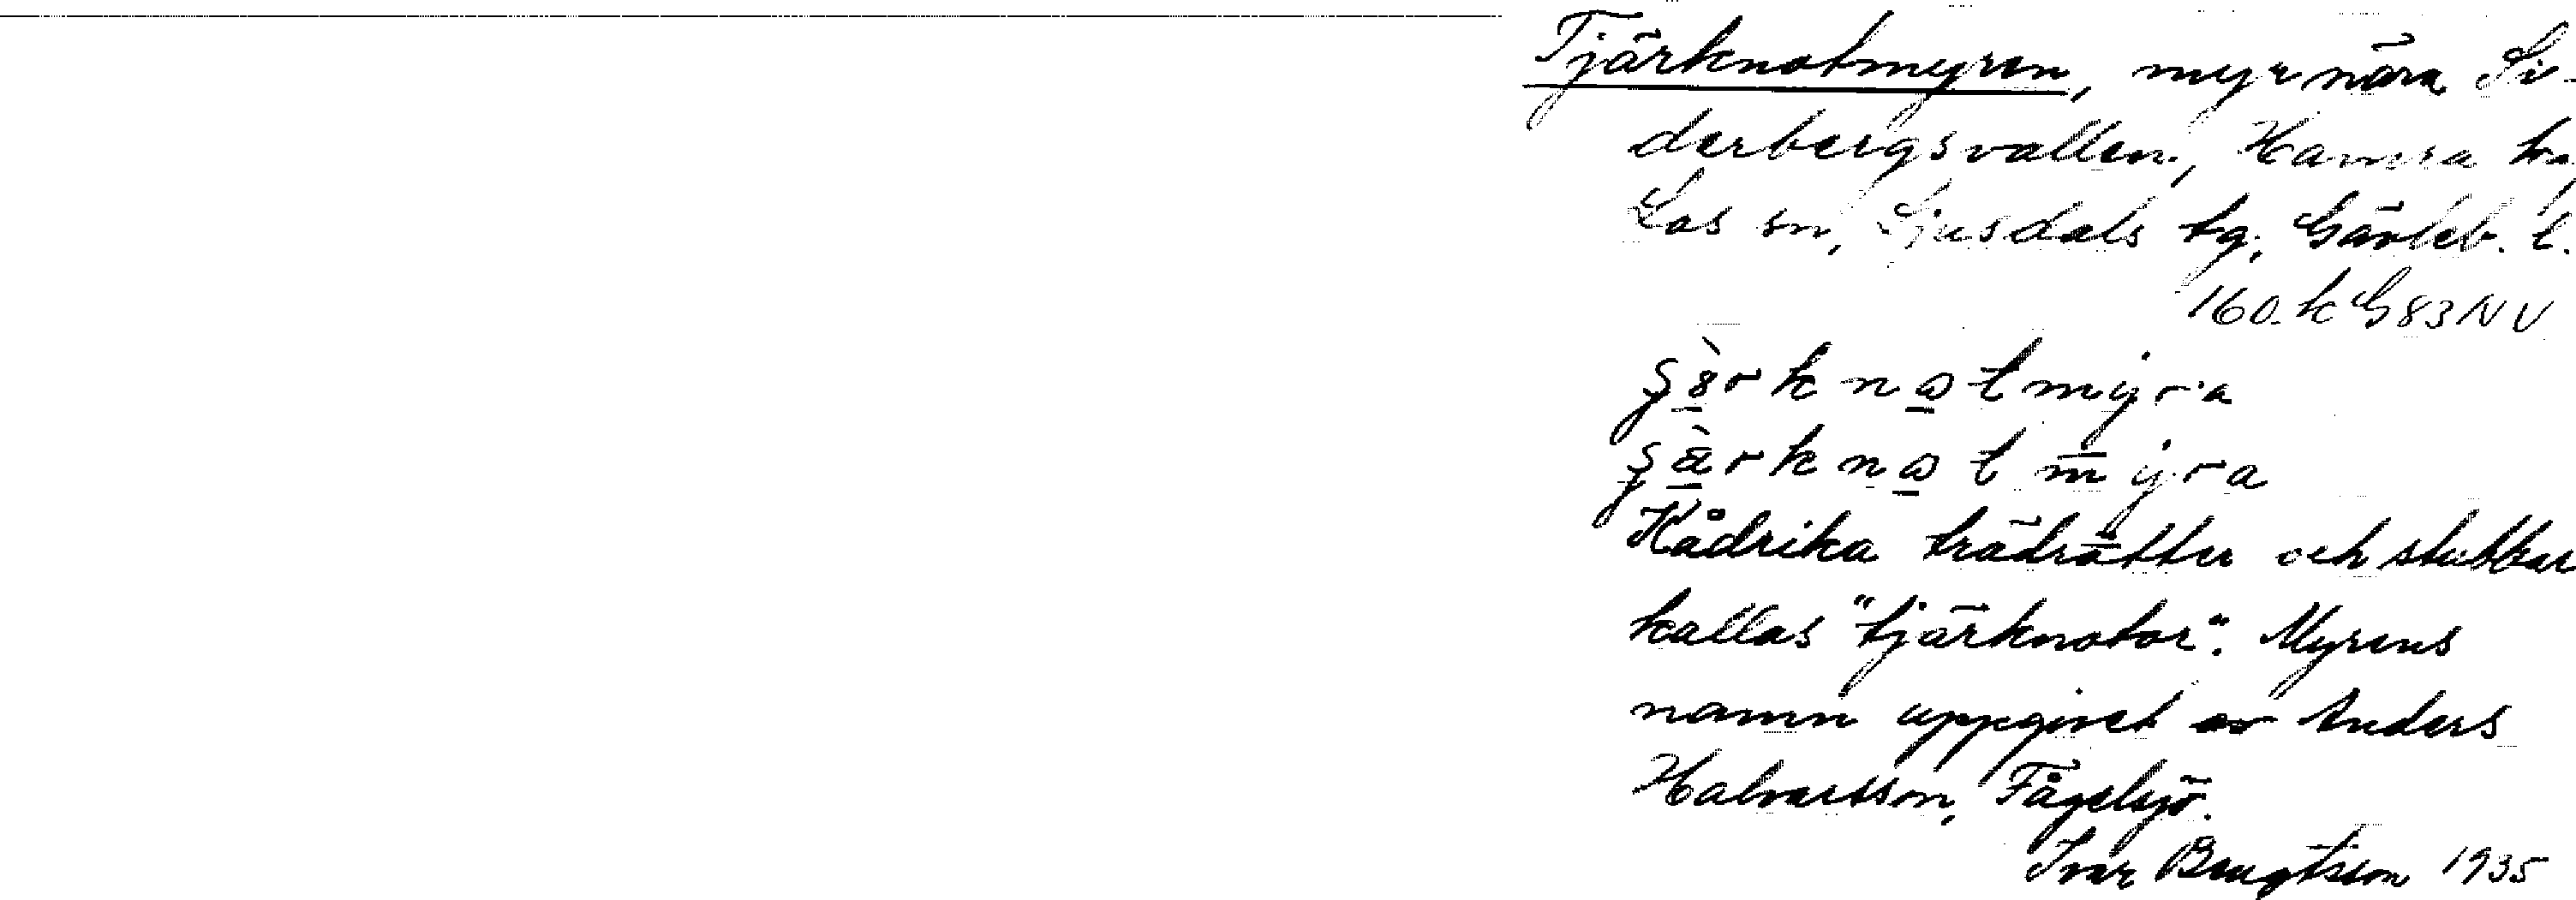 Tjärknotmyren, myr nära Si-
derbergsvallen, Hamra
Los sn, Ljusdals tg, Gävleb. l.
160. k G 83 NV
Kådrika trädrötter och stubbar
kallas "tjärknotor". Myrens
namn uppgivet av Anders
Halvarsson, Fågelsjö.
Ivar Bengtsson 1935